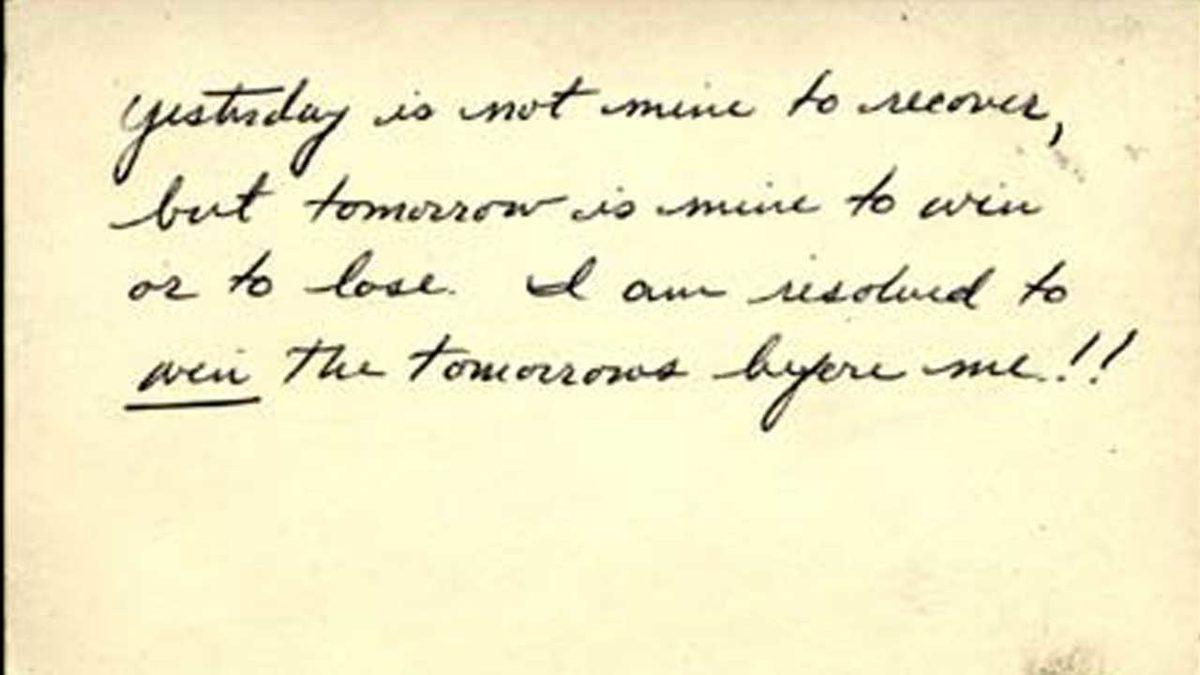 Yesterday is not mine to recover,
but tomorrow is mine to win
or to lose. I am resolved to
win the tomorrows before me!!